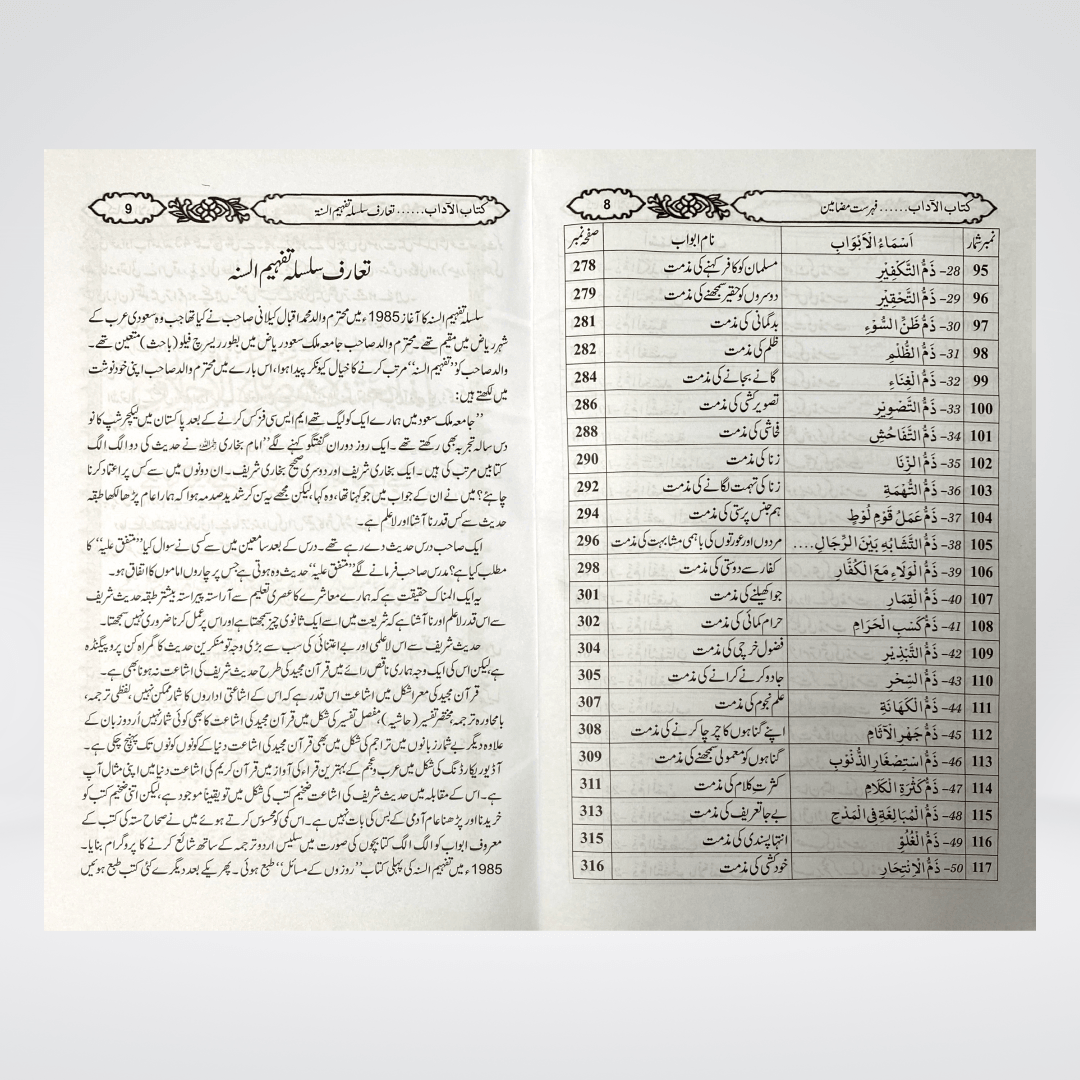 كتاب الآداب......فہرست مضامین 8
نمبر شمار اَسْمَاءُ الْاَبْوَابِ نام ابواب صفحہ نمبر
95 28- ذَمُّ التَّكْفِيْرِ مسلمان کو کافر کہنے کی مذمت 278
96 29- ذَمُّ التَّحْقِيْرِ دوسروں کو حقیر سمجھنے کی مذمت 279
97 30- ذَمُّ ظَنِّ السُّوْءِ بدگمانی کی مذمت 281
98 31- ذَمُّ الظُّلْمِ ظلم کی مذمت 282
99 32- ذَمُّ الْغِنَاءِ گانے بجانے کی مذمت 284
100 33- ذَمُّ التَّصْوِيْرِ تصویر کشی کی مذمت 286
101 34- ذَمُّ التَّفَاحُشِ فحاشی کی مذمت 288
102 35- ذَمُّ الزِّنَا زنا کی مذمت 290
103 36- ذَمُّ التُّهْمَةِ زنا کی تہمت لگانے کی مذمت 292
104 37- ذَمُّ عَمَلُ قَوْمِ لُوْطٍ ہم جنس پرستی کی مذمت 294
105 38- ذَمُّ التَّشَابُهِ بَيْنَ الرِّجَالِ.... مردوں اور عورتوں کی باہمی مشابہت کی مذمت 296
106 39- ذَمُّ الْوَلَاءِ مَعَ الْكُفَّارِ کفار سے دوستی کی مذمت 298
107 40- ذَمُّ الْقِمَارِ جوا کھیلنے کی مذمت 301
108 41- ذَمُّ كَسْبِ الْحَرَامِ حرام کمائی کی مذمت 302
109 42- ذَمُّ التَّبْذِيْرِ فضول خرچی کی مذمت 304
110 43- ذَمُّ السِّحْرِ جادو کرنے کرانے کی مذمت 305
111 44- ذَمُّ الْكَهَانَةِ علم نجوم کی مذمت 307
112 45- ذَمُّ جَهْرِ الْآثَامِ اپنے گناہوں کا چرچا کرنے کی مذمت 308
113 46- ذَمُّ اسْتِصْغَارِ الذُّنُوْبِ گناہوں کو معمولی سمجھنے کی مذمت 309
114 47- ذَمُّ كَثْرَةِ الْكَلَامِ کثرت کلام کی مذمت 311
115 48- ذَمُّ الْمُبَالِغَةِ فِى الْمَدْحِ بے جا تعریف کی مذمت 313
116 49- ذَمُّ الْغُلُوِّ انتہا پسندی کی مذمت 315
117 50- ذَمُّ الْاِنْتِحَارِ خودکشی کی مذمت 316
كتاب الآداب......تعارف سلسلہ تفہیم السنۃ 9
تعارف سلسلہ تفہیم السنہ
سلسلہ تفہیم السنہ کا آغاز 1985ء میں محترم والد محمد اقبال کیلانی صاحب نے کیا تھا جب وہ سعودی عرب کے
شہر ریاض میں مقیم تھے۔ محترم والد صاحب جامعہ ملک سعود ریاض میں بطور ریسرچ فیلو (باحث) متعین تھے۔
والد صاحب کو ”تفہیم السنہ“ مرتب کرنے کا خیال کیونکر پیدا ہوا، اس بارے میں محترم والد صاحب اپنی خودنوشت
میں لکھتے ہیں:
”جامعہ ملک سعود میں ہمارے ایک کولیگ تھے ایم ایس سی فزکس کرنے کے بعد پاکستان میں لیکچر شپ کا نو
دس سالہ تجربہ بھی رکھتے تھے۔ ایک روز دوران گفتگو کہنے لگے ”امام بخاری رحمہ اللہ نے حدیث کی دو الگ الگ
کتابیں مرتب کی ہیں۔ ایک بخاری شریف اور دوسری صحیح بخاری شریف۔ ان دونوں میں سے کس پر اعتماد کرنا
چاہئے؟ میں نے ان کے جواب میں جو کہنا تھا، وہ کہا، لیکن مجھے یہ سن کر شدید صدمہ ہوا کہ ہمارا عام پڑھا لکھا طبقہ
حدیث سے کس قدر نا آشنا اور لاعلم ہے۔
ایک صاحب درس حدیث دے رہے تھے۔ درس کے بعد سامعین میں سے کسی نے سوال کیا ”متفق علیہ“ کا
مطلب کیا ہے؟ مدرس صاحب فرمانے لگے ”متفق علیہ“ حدیث وہ ہوتی ہے جس پر چاروں اماموں کا اتفاق ہو۔
یہ ایک المناک حقیقت ہے کہ ہمارے معاشرے کا عصری تعلیم سے آراستہ پیراستہ بیشتر طبقہ حدیث شریف
سے اس قدر لاعلم اور نا آشنا ہے کہ شریعت میں اسے ایک ثانوی چیز سمجھتا ہے اور اس پر عمل کرنا ضروری نہیں سمجھتا۔
حدیث شریف سے اس لاعلمی اور بے اعتنائی کی سب سے بڑی وجہ تو منکرین حدیث کا گمراہ کن پروپیگنڈہ
ہے، لیکن اس کی ایک وجہ ہماری ناقص رائے میں قرآن مجید کی طرح حدیث شریف کی اشاعت نہ ہونا بھی ہے۔
قرآن مجید کی معرا شکل میں اشاعت اس قدر ہے کہ اس کے اشاعتی اداروں کا شمار ممکن نہیں، لفظی ترجمہ،
با محاورہ ترجمہ، مختصر تفسیر (حاشیہ)، مفصل تفسیر کی شکل میں قرآن مجید کی اشاعت کا بھی کوئی شمار نہیں اُردو زبان کے
علاوہ دیگر بے شمار زبانوں میں تراجم کی شکل میں بھی قرآن مجید کی اشاعت دنیا کے کونوں کونوں تک پہنچ چکی ہے۔
آڈیو ریکارڈنگ کی شکل میں عرب و عجم کے بہترین قراء کی آواز میں قرآن کریم کی اشاعت دنیا میں اپنی مثال آپ
ہے۔ اس کے مقابلہ میں حدیث شریف کی اشاعت ضخیم کتب کی شکل میں تو یقیناً موجود ہے، لیکن اتنی ضخیم کتب کو
خریدنا اور پڑھنا عام آدمی کے بس کی بات نہیں ہے۔ اس کمی کو محسوس کرتے ہوئے میں نے صحاح ستہ کی کتب کے
معروف ابواب کو الگ الگ کتابچوں کی صورت میں سلیس اردو ترجمہ کے ساتھ شائع کرنے کا پروگرام بنایا۔
1985ء میں تفہیم السنہ کی پہلی کتاب ”روزوں کے مسائل“ طبع ہوئی۔ پھر یکے بعد دیگرے کئی کتب طبع ہوئیں